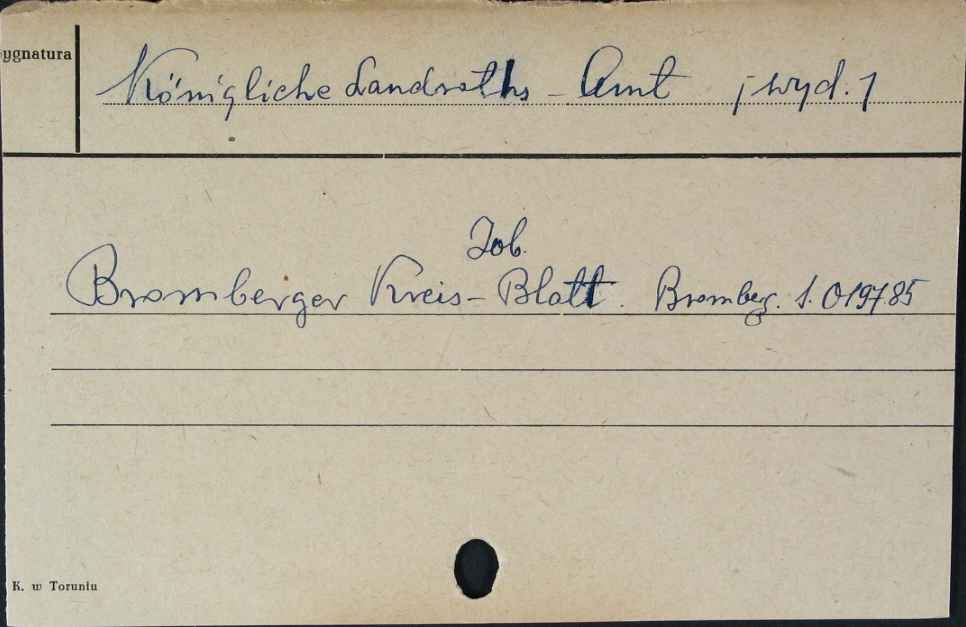 ygnatura
Königliche Landraths - Amt /wyd./
Zob.
Bromberger Kreis-Blatt. Bromberg. S. 019785
K. w Toruniu